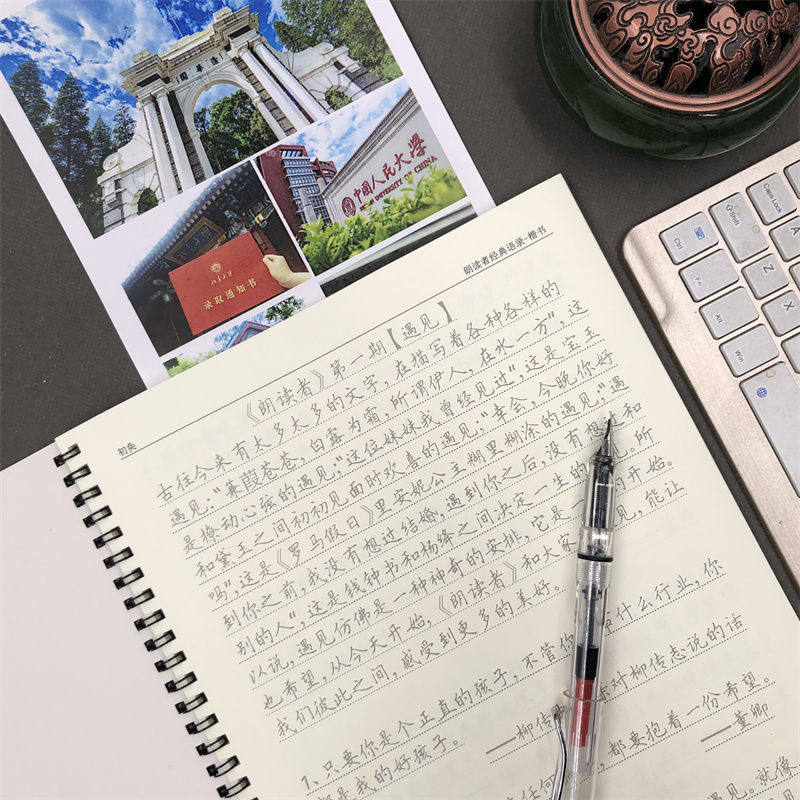 清華園
中国人民大学
RENMIN UNIVERSITY OF CHINA
北京大学
录取通知书
朗读者经典语录-楷书
初央
《朗读者》第一期【遇见】
古往今来有太多太多的文字,在描写着各种各样的
遇见:"蒹葭苍苍,白露为霜,所谓伊人,在水一方",这
是撩动心弦的遇见;"这位妹妹我曾经见过",这是宝玉
和黛玉之间初初见面时欢喜的遇见;"幸会,今晚你好
吗",这是《罗马假日》里安妮公主糊里糊涂的遇见;"遇
到你之前,我没有想过结婚,遇到你之后,没有想 和
别的人",这是钱钟书和杨绛之间决定一生的 见。所
以说,遇见仿佛是一种神奇的安排,它是一 的开始。
也希望,从今天开始,《朗读者》和大家 见,能让
我们彼此之间,感受到更多的美好。
1、只要你是个正直的孩子,不管你 什么行业,你
都是我的好孩子。 ——柳传 对柳传志说的话
任何 ,都要抱着一份希望。
——董卿
就像
Ctrl
Shift
Caps Lock
A
Fn
Z
Alt
Win